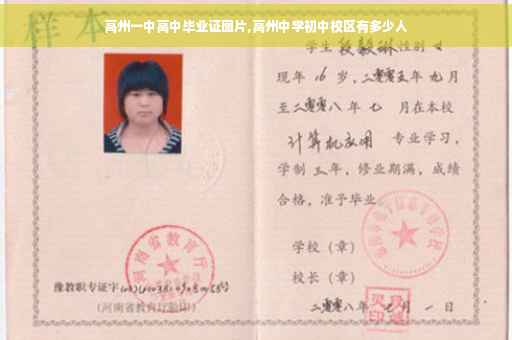 样本
高州一中高中毕业证图片,高州中学初中校区有多少人
学生 段毅琳 性别 女
现年 16 岁,二零零五年 九 月
至二零零八年 七 月在本校
计算机应用 专业学习,
学制 三 年,修业期满,成绩
合格,准予毕业
学校(章)
校长(章)
二零零八年 月一日
河南省教育厅
豫教职专证字
(河南省教育厅验印)